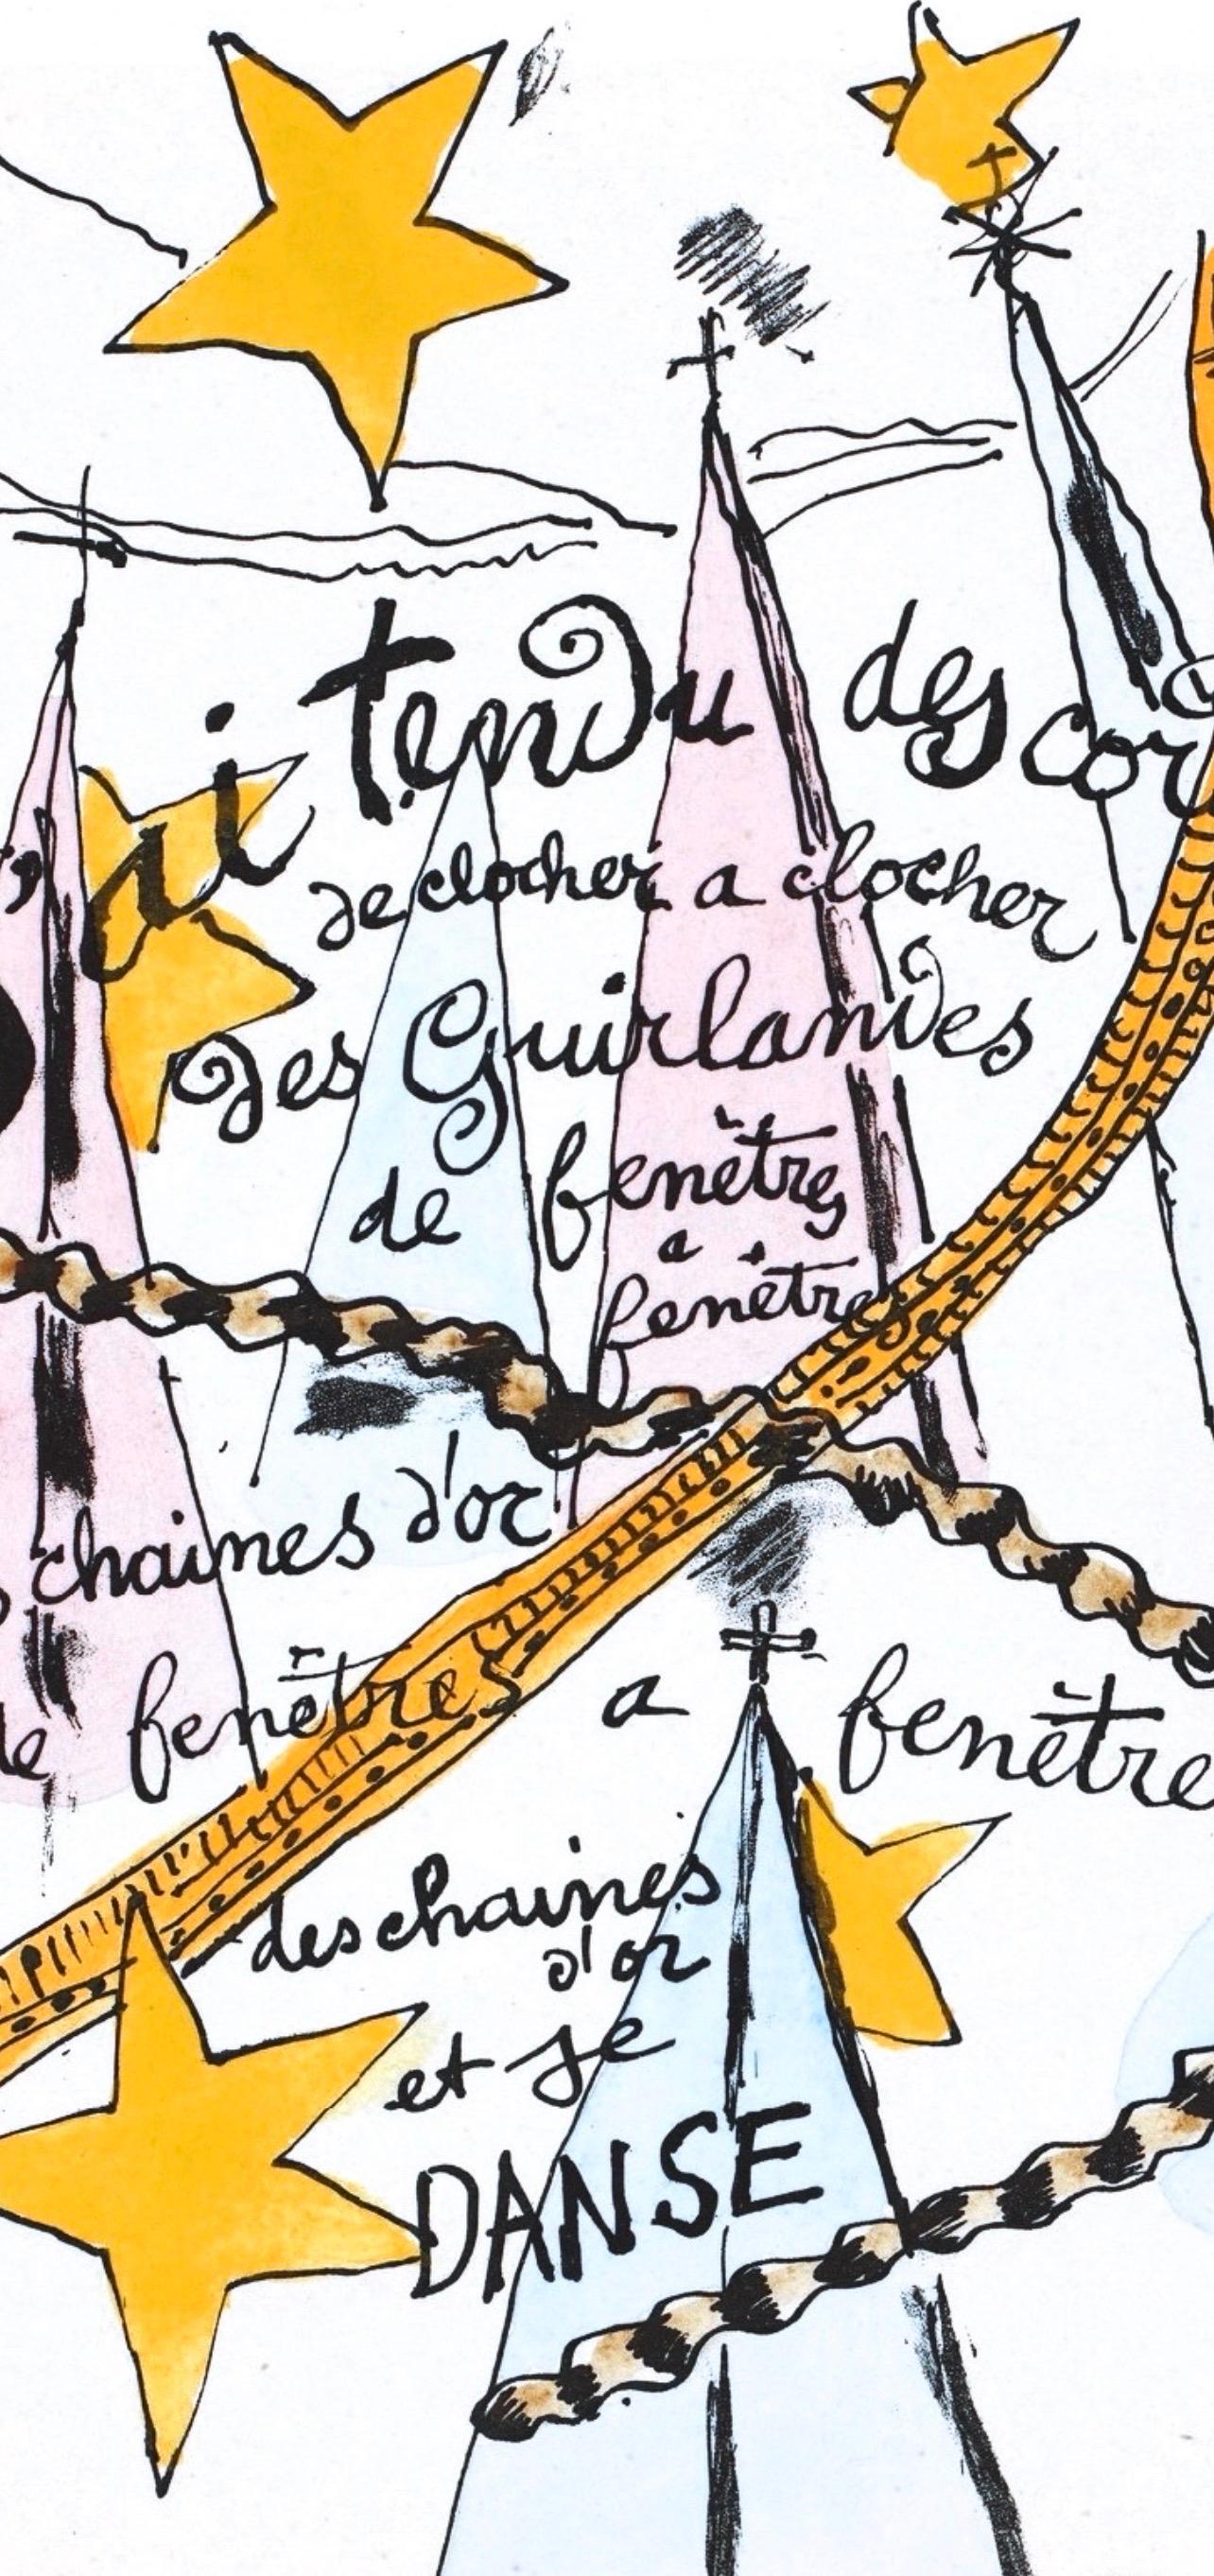 'ai tendu des cor
de clocher a clocher
des Guirlandes
de fenêtres
a
fenêtre
chaines d'or
de fenêtres a fenêtre
des chaines
d'or
et je
DANSE